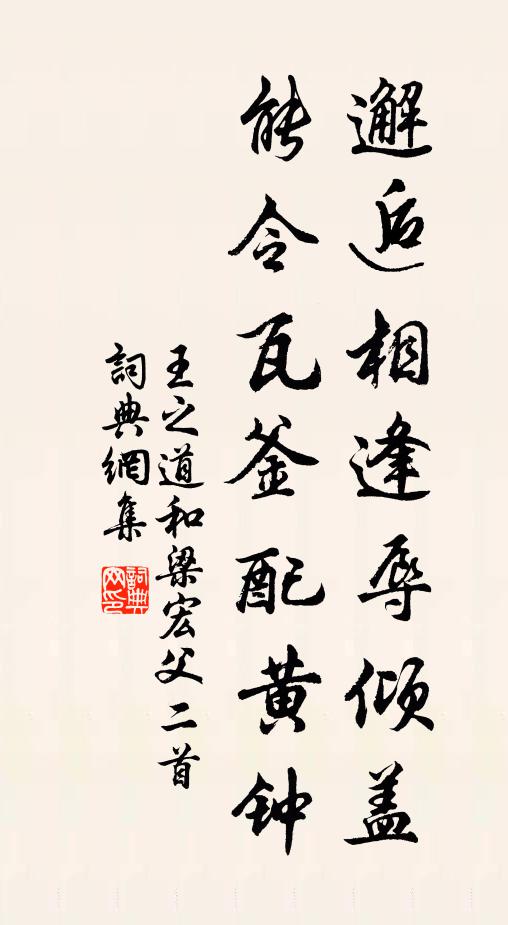 邂逅相逢辱倾盖
能令瓦釜配黄钟
王之道和梁宏父二首
詞典網集
詞典網印